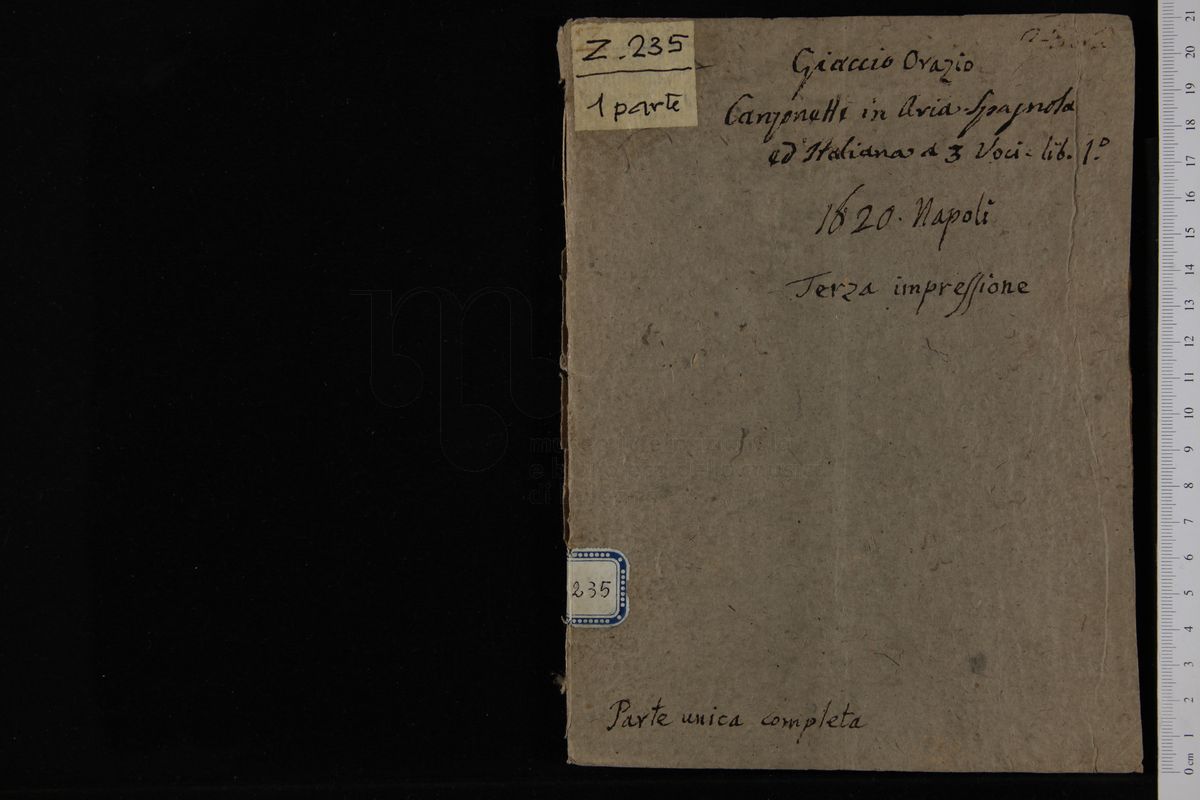 Z.235
1 parte
Giaccio Orazio
Canzonette in Aria Spagnola
ed Italiana a 3 Voci - lib. 1.º
1620. Napoli
Terza impressione
235
Parte unica completa
21
20
19
18
17
16
15
14
13
12
11
10
9
8
7
6
5
4
3
2
1
0 cm